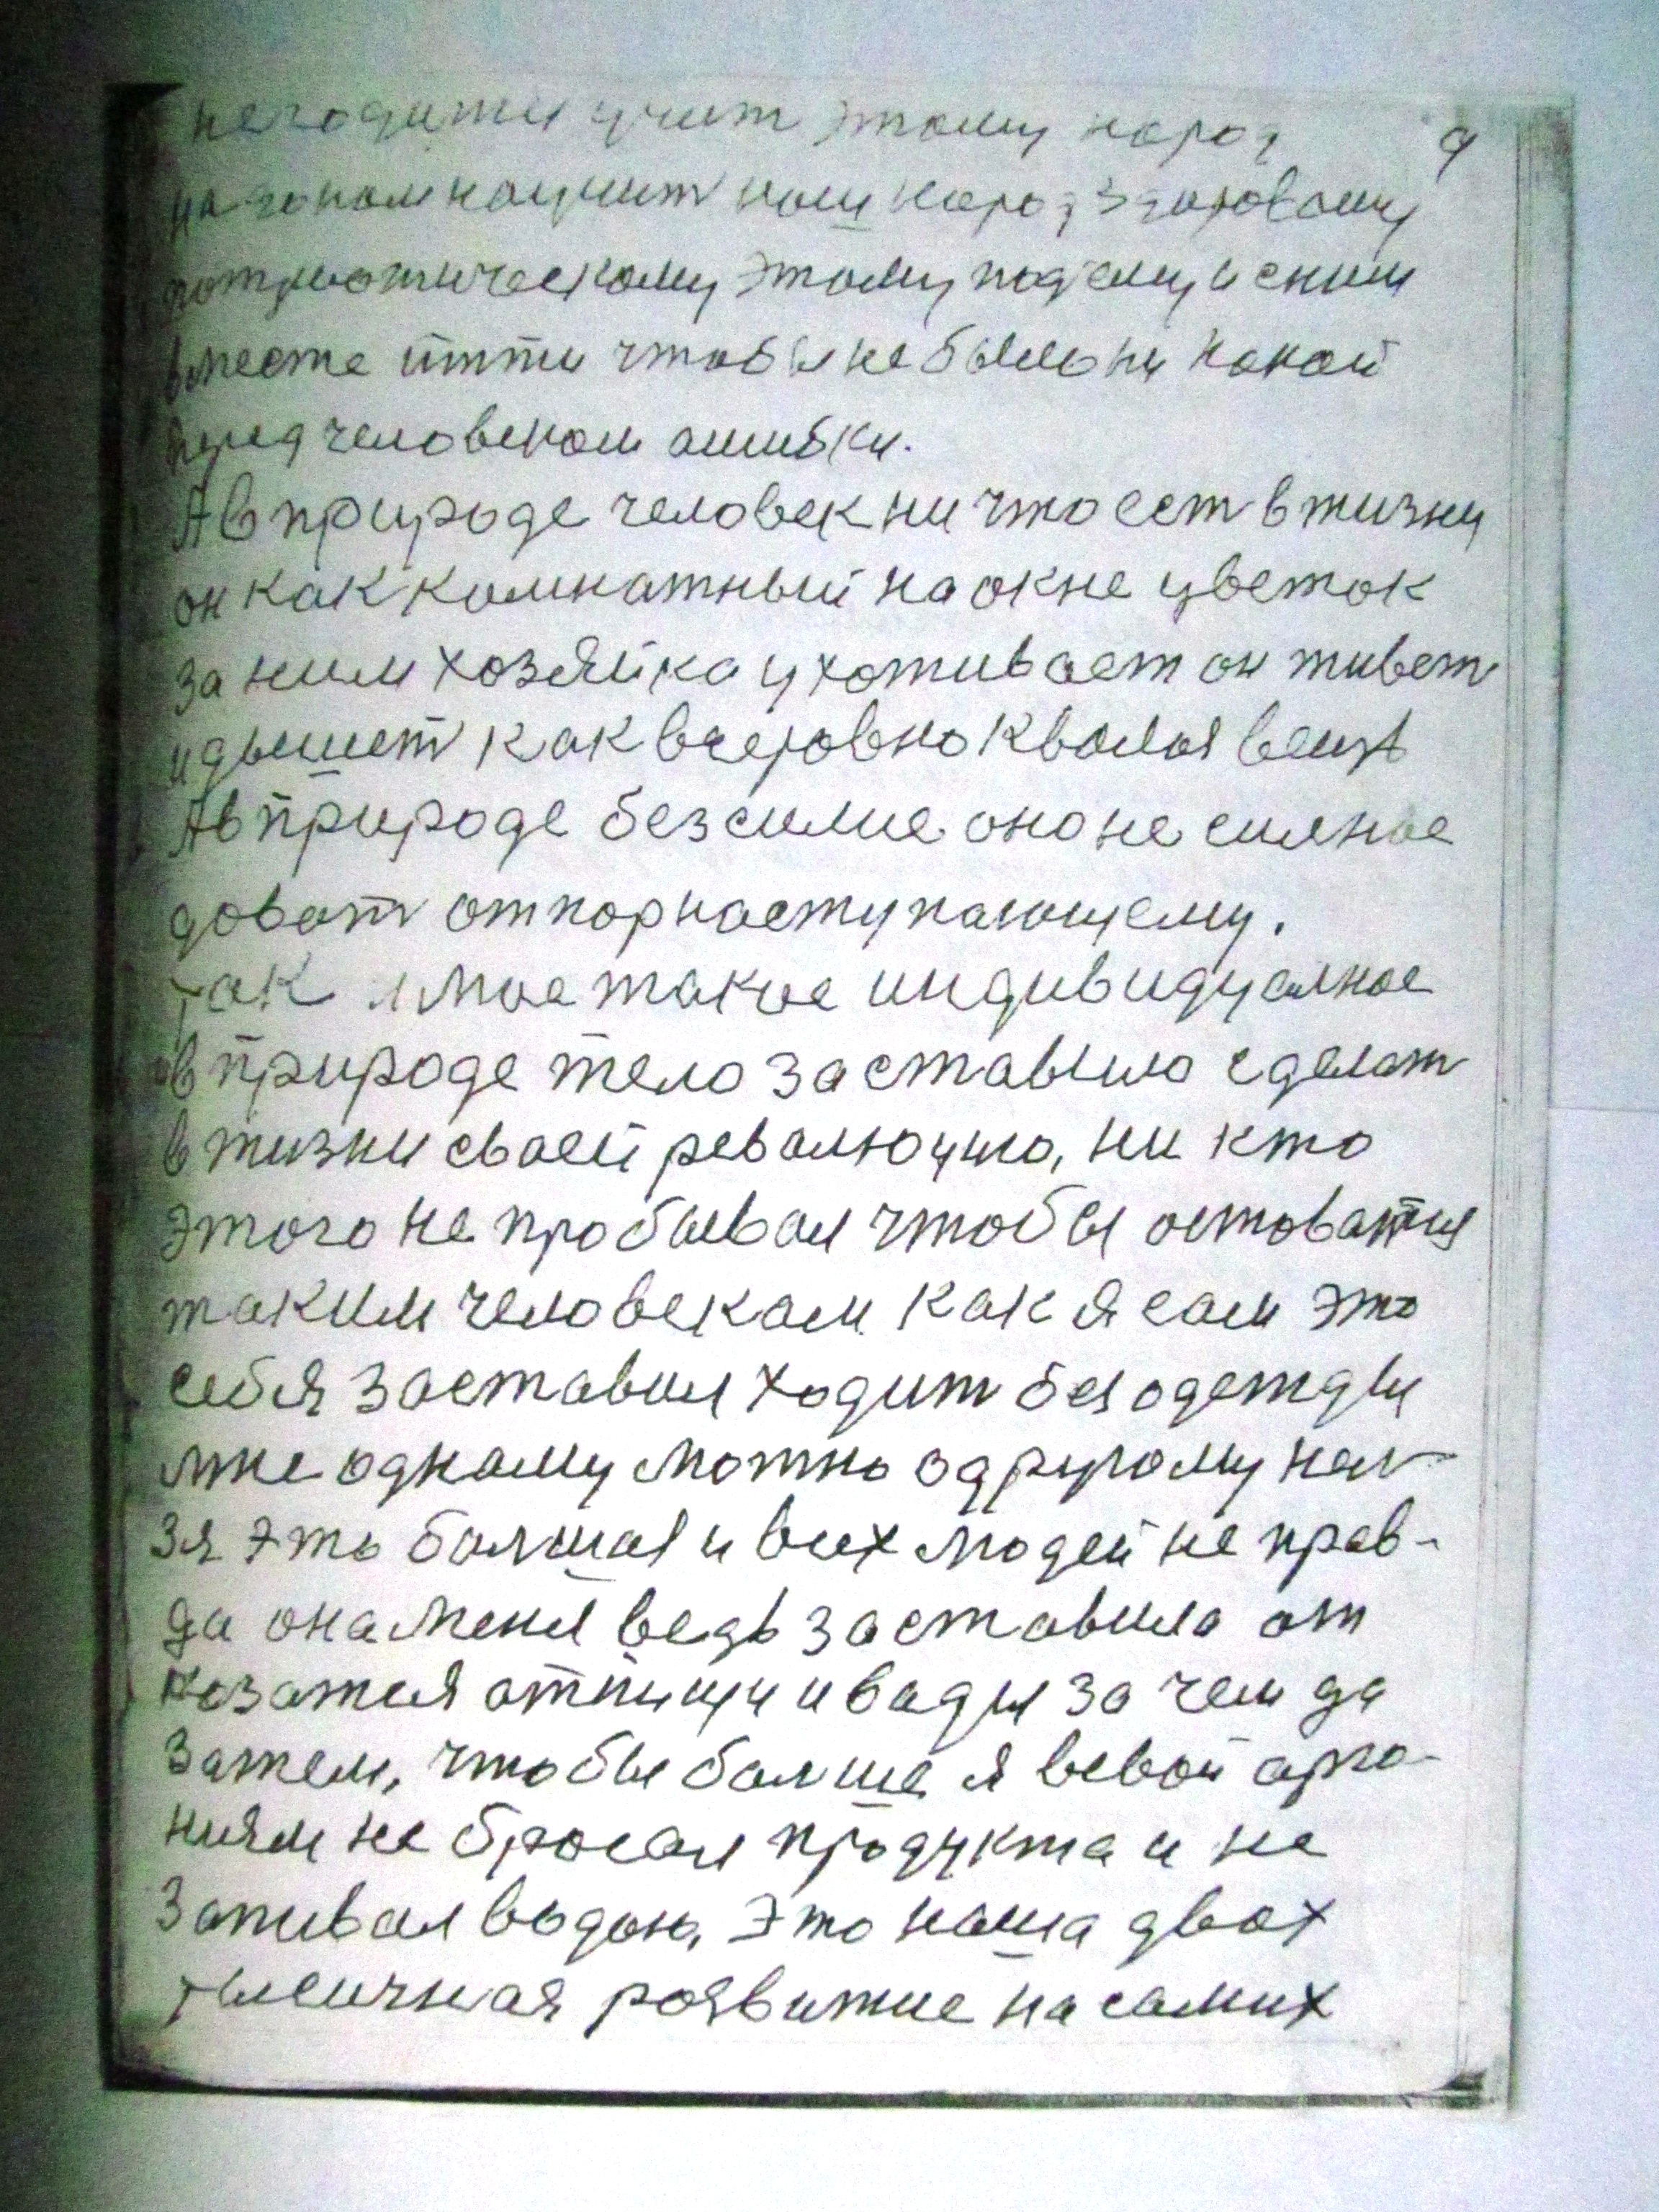 не годится учит этому народ 9
надо нам научит наш народ здоровому
патриотическому этому подъему и сним
вместе итти чтобы не было ни какой
перед человеком ошибки.
А в природе человек ни что ест в жизни
он как комнатный на окне цветок
за ним хозяйка ухоживает он живет
и дышет как всеровно квалая вещь
А в природе безсилие оно не силное
доват отпор наступающему.
так и мое такое индивидуалное
в природе тело заставило сделат
в жизни своей револющию, ни кто
этого не пробывал чтобы остоватся
таким человеком как я сам это
себя заставил ходит без одежды
мне одному можно одругому нел-
зя это болшая и всих людей не прав-
да она меня ведь заставила от
козатся отпищи и воды за чем да
затем, чтобы болше я всвой орга-
низм не бросал продукта и не
запивал водою, Это наша двох
тысичная розвитие на самих